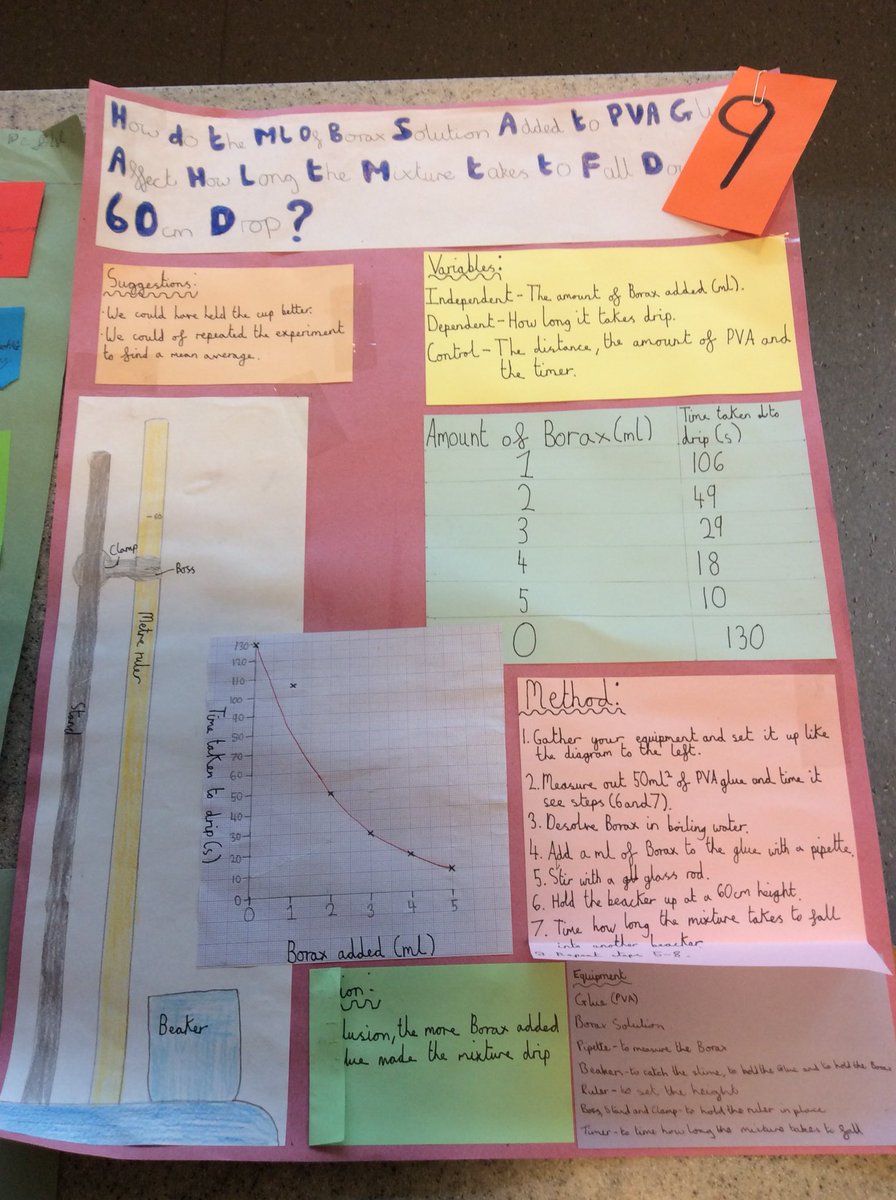 How do the ML Of Borax Solution Added to PVA
Affect How Long the Mixture takes to Fall
60cm Drop?
9
Suggestions:
·We could have held the cup better.
·We could of repeated the experiment
to find a mean average.
Variables:
Independent - The amount of Borax added (ml).
Dependent - How long it takes drip.
Control - The distance, the amount of PVA and
the timer.
Amount of Borax (ml) Time taken to drip (s)
1 106
2 49
3 29
4 18
5 10
0 130
60
Clamp
Boss
Metre ruler
Stand
Beaker
Time taken to drip (s)
130
120
110
100
90
80
70
60
50
40
30
20
10
0
0 1 2 3 4 5
Borax added (ml)
Method:
1. Gather your equipment and set it up like
the diagram to the left.
2. Measure out 50ml² of PVA glue and time it
see steps (6 and 7).
3. Desolve Borax in boiling water.
4. Add a ml of Borax to the glue with a pipette.
5. Stir with a glass rod.
6. Hold the beacker up at a 60cm height.
7. Time how long the mixture takes to fall
into another beacker
Repeat steps 5-8.
ion:
lusion, the more Borax added
lue made the mixture drip
Equipment
Glue (PVA)
Borax Solution
Pipette - to measure the Borax
Beakers - to catch the slime, to hold the Glue and to hold the Borax
Ruler - to set the height
Boss, Stand and Clamp - to hold the ruler in place
Timer - to time how long the mixture takes to fall